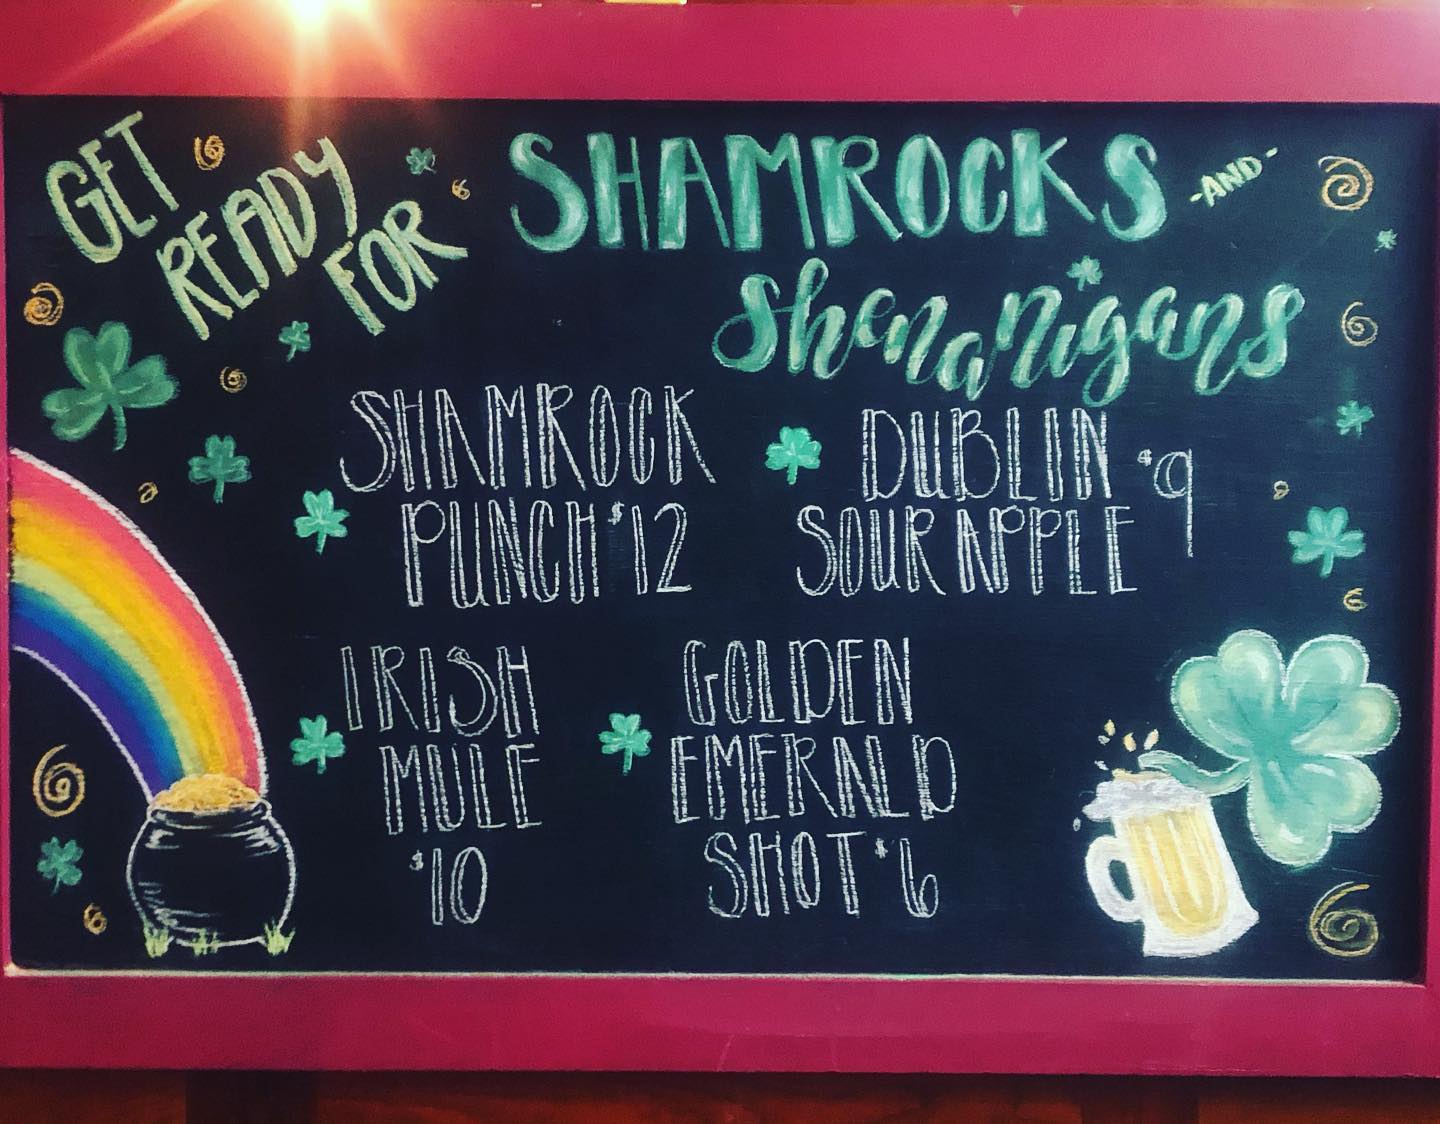 GET
READY
FOR
SHAMROCKS -AND-
Shenanigans
SHAMROCK
PUNCH $12
DUBLIN $9
SOUR APPLE
IRISH
MULE
$10
GOLDEN
EMERALD
SHOT $6